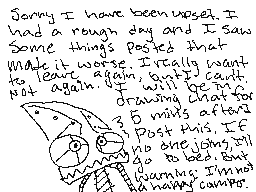 Sorry I have been upset. I
had a rough day and I saw
Some things posted that
made it worse. I really want
to leave again, but I can't.
Not again. I will be in
drawing chat for
35 mins after I
Post this. If
no one joins, I'll
go to bed. But
warning: I'm not
a happy camper.